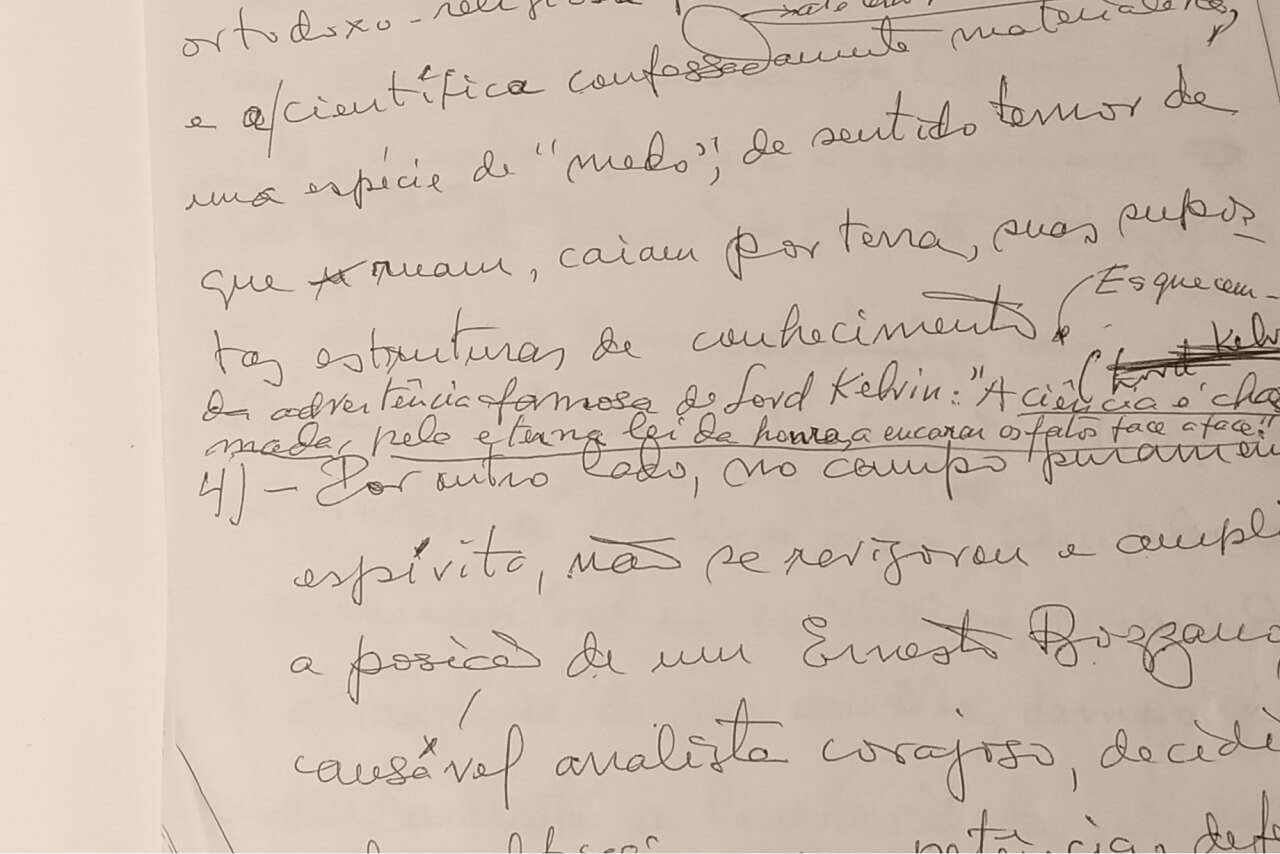 ortodoxo-religiosa
e a científica confessadamente materialens,
uma espécie de "medo", de sentido temor de
que ruam, caiam por terra, suas supos-
tas estruturas de conhecimento. Esquecem-
da advertência famosa de Lord Kelvin: "A ciência é cha
mada, pelo eterna lei da honra, a encarar os fatos face a face."
4) - Por outro lado, no campo puramen
espírito, não se revigorou e ampli
a posição de um Ernesto Bozzano,
causável analista corajoso, decidi